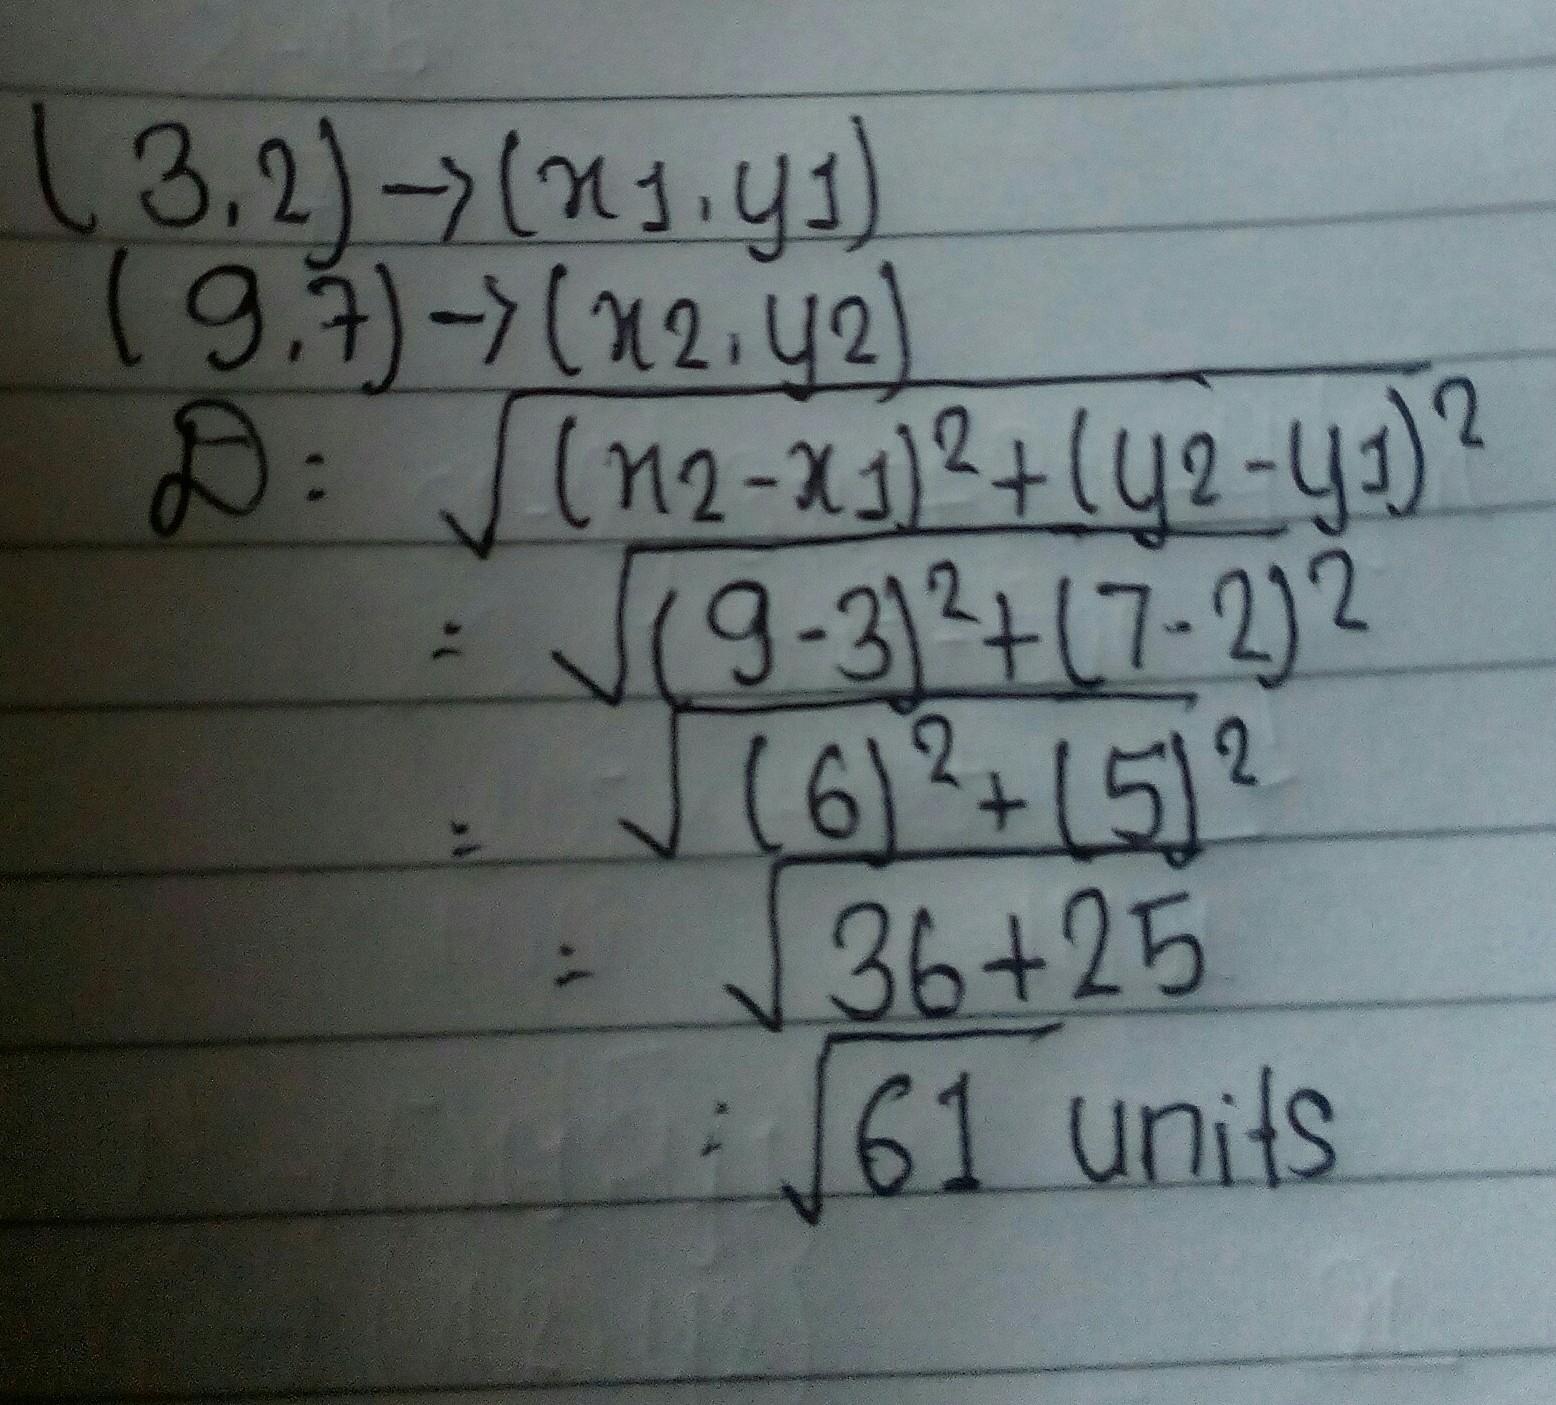 (3,2)→(x1,y1)
(9,7)→(x2,y2)
D = √(x2-x1)²+(y2-y1)²
= √(9-3)²+(7-2)²
= √(6)²+(5)²
= √36+25
= √61 units